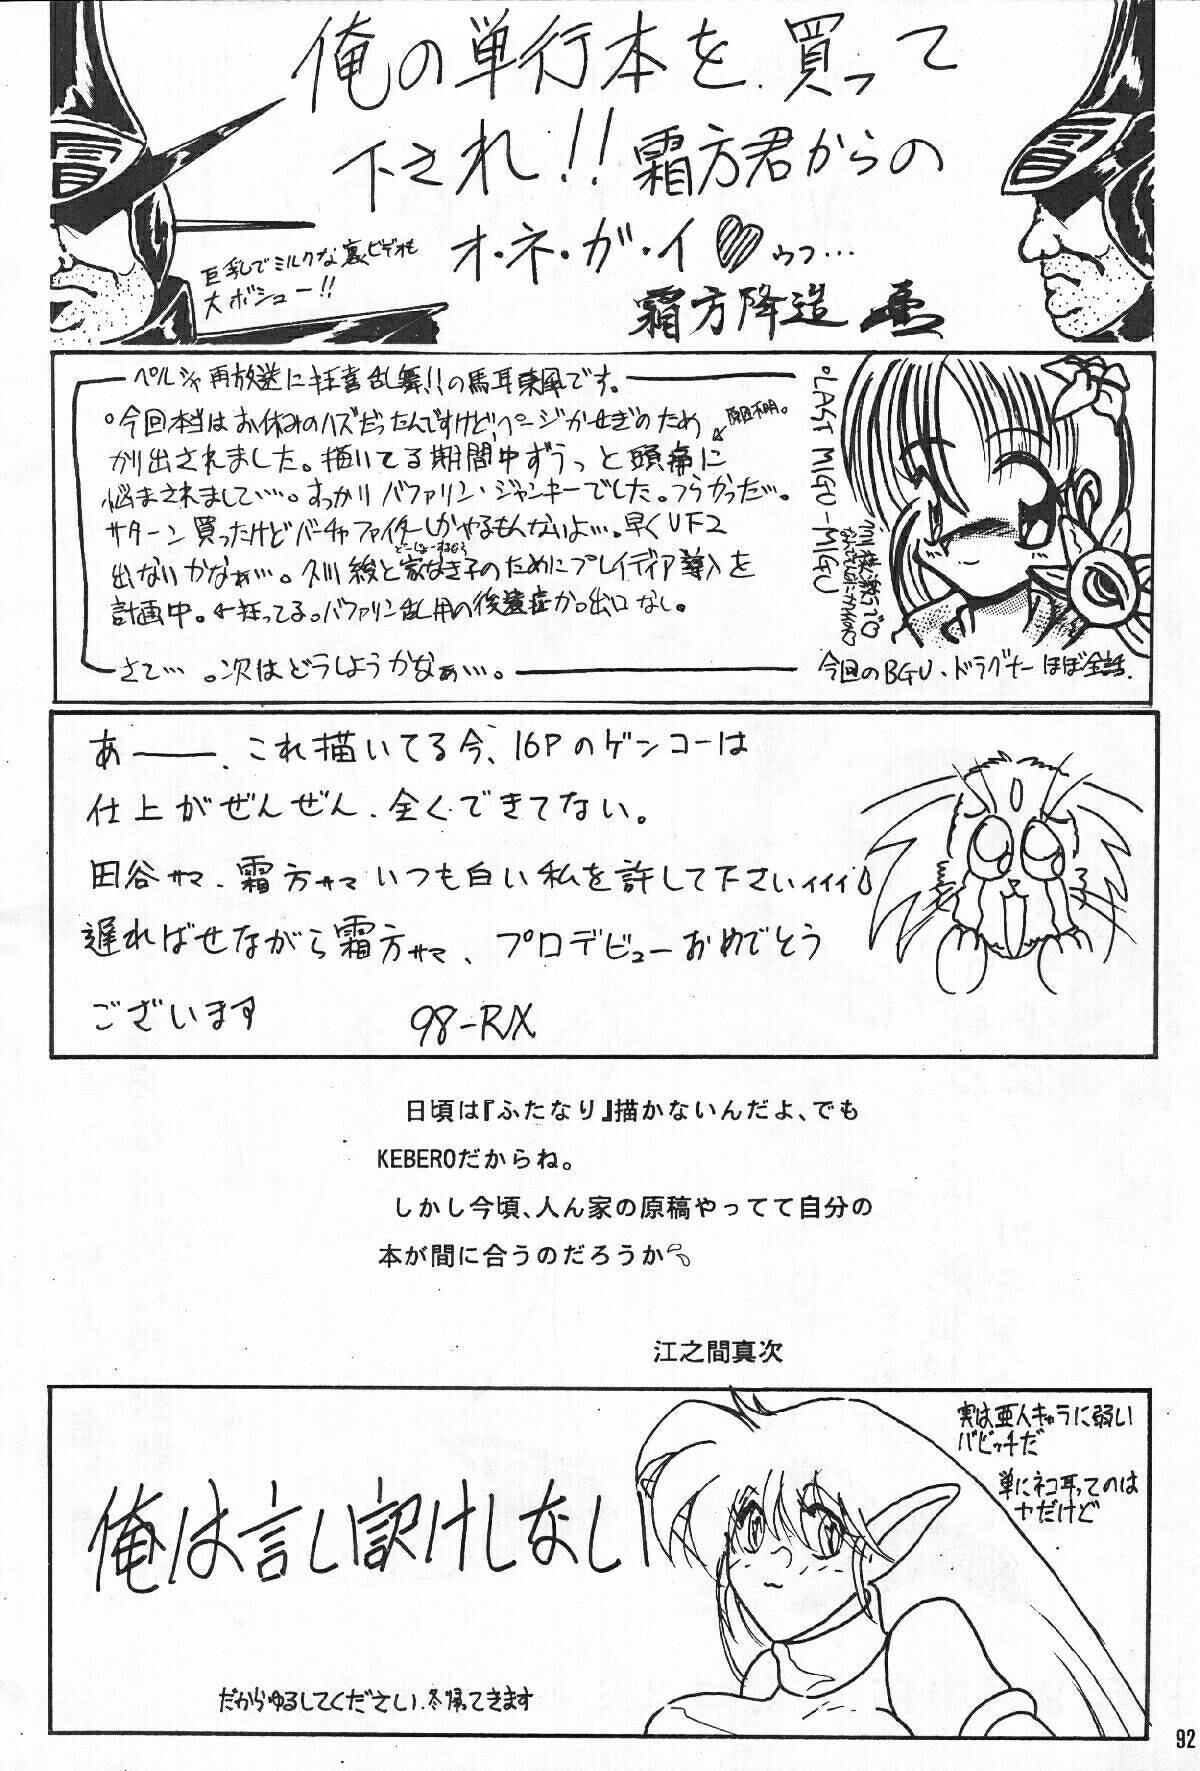 俺の単行本を、買って
下され!!霜方君からの
オ・ネ・ガ・イ♡ウフ…
霜方降造
巨乳でミルクな裏ビデオも
大ボシュー!!
ペルシャ再放送に狂喜乱舞!!の馬耳東風です。
。今回本当はお休みのハズだったんですけどページかせぎのため
原因不明。
かり出されました。描いてる期間中ずうっと頭痛に
悩まされまして…。すっかりバファリン・ジャンキーでした。つらかった…。
サターン買ったけどバーチャファイターしかやるもんないよ…。早くVF2
出ないかなぁ…。
綾と家なき子のためにプレイディア導入を
計画中。←狂ってる。バファリン乱用の後遺症か。出口なし。
さて…。次はどうしようかなぁ…。
。LAST MIGU-MIGU
今回のBGV、ドラグナーほぼ全話。
あ――、これ描いてる今、16Pのゲンコーは
仕上がぜんぜん、全くできてない。
田谷サマ、霜方サマいつも白い私を許して下さいィィィ
遅ればせながら霜方サマ、プロデビューおめでとう
ございます 98-RX
日頃は『ふたなり』描かないんだよ、でも
KEBEROだからね。
しかし今頃、人ん家の原稿やってて自分の
本が間に合うのだろうか
江之間真次
実は亜人キャラに弱い
バビッチだ
単にネコ耳ってのは
ヤだけど
俺は言し訳けしなし!
だからゆるしてください、冬帰ってきます
92